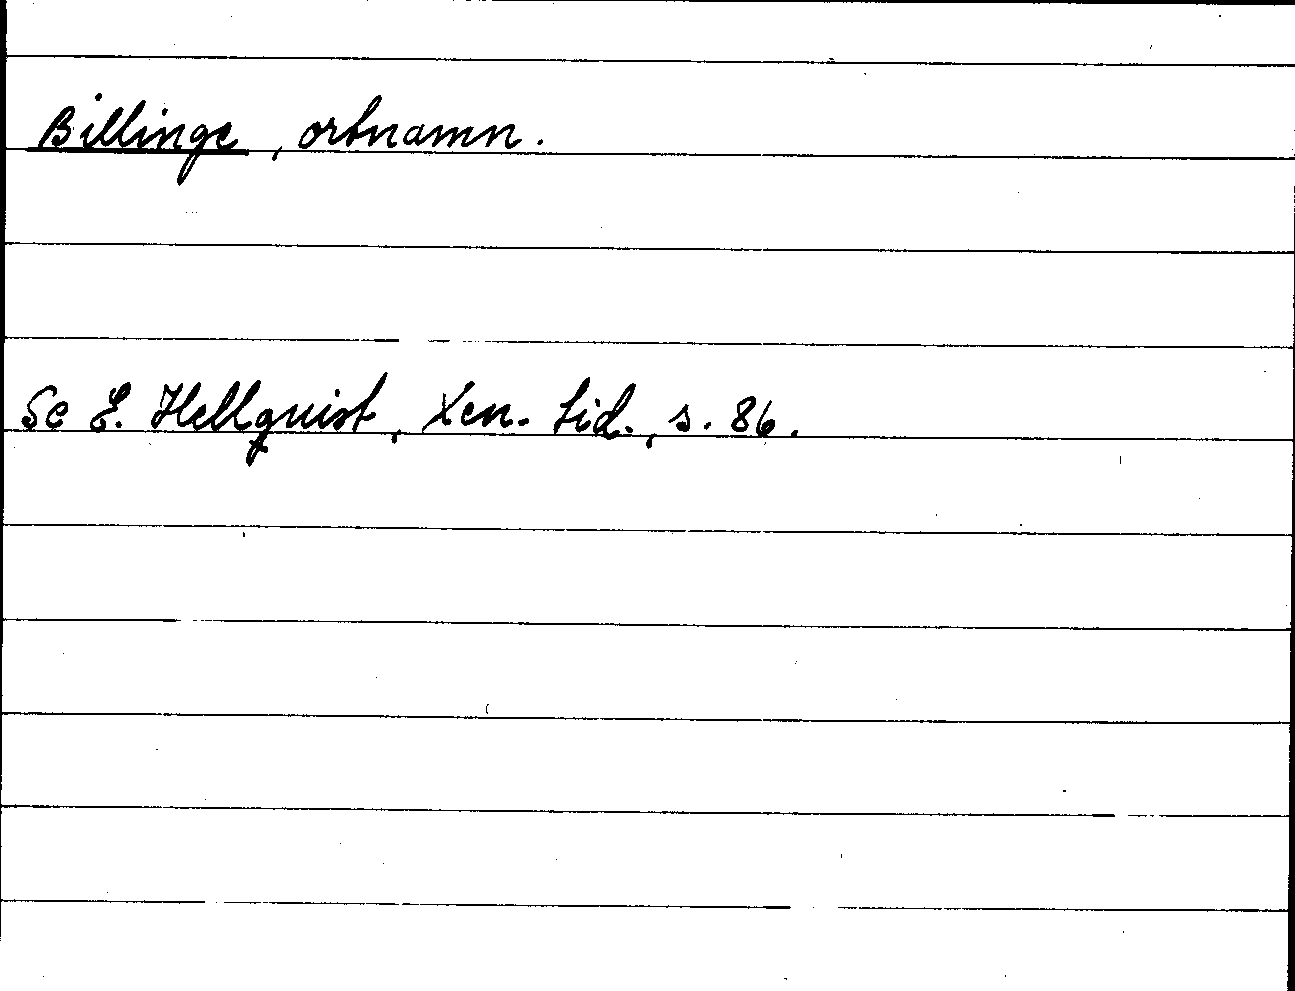 Billinge, ortnamn.
Se E. Hellquist, Xen. Lid., s. 86.